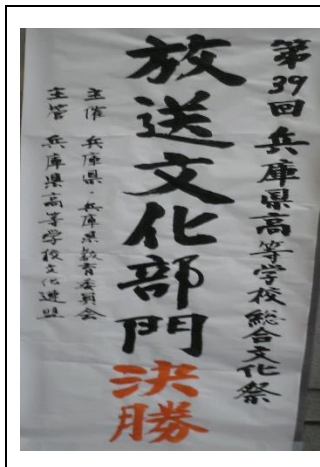 第39回兵庫県高等学校総合文化祭
放送文化部門決勝
主催 兵庫県・兵庫県教育委員会
主管 兵庫県高等学校文化連盟